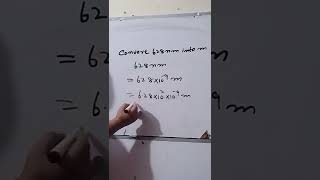 Convert 628nm into m
628nm
= 628×10⁻⁹ m
= 6.28×10²×10⁻⁹ m
= 6.